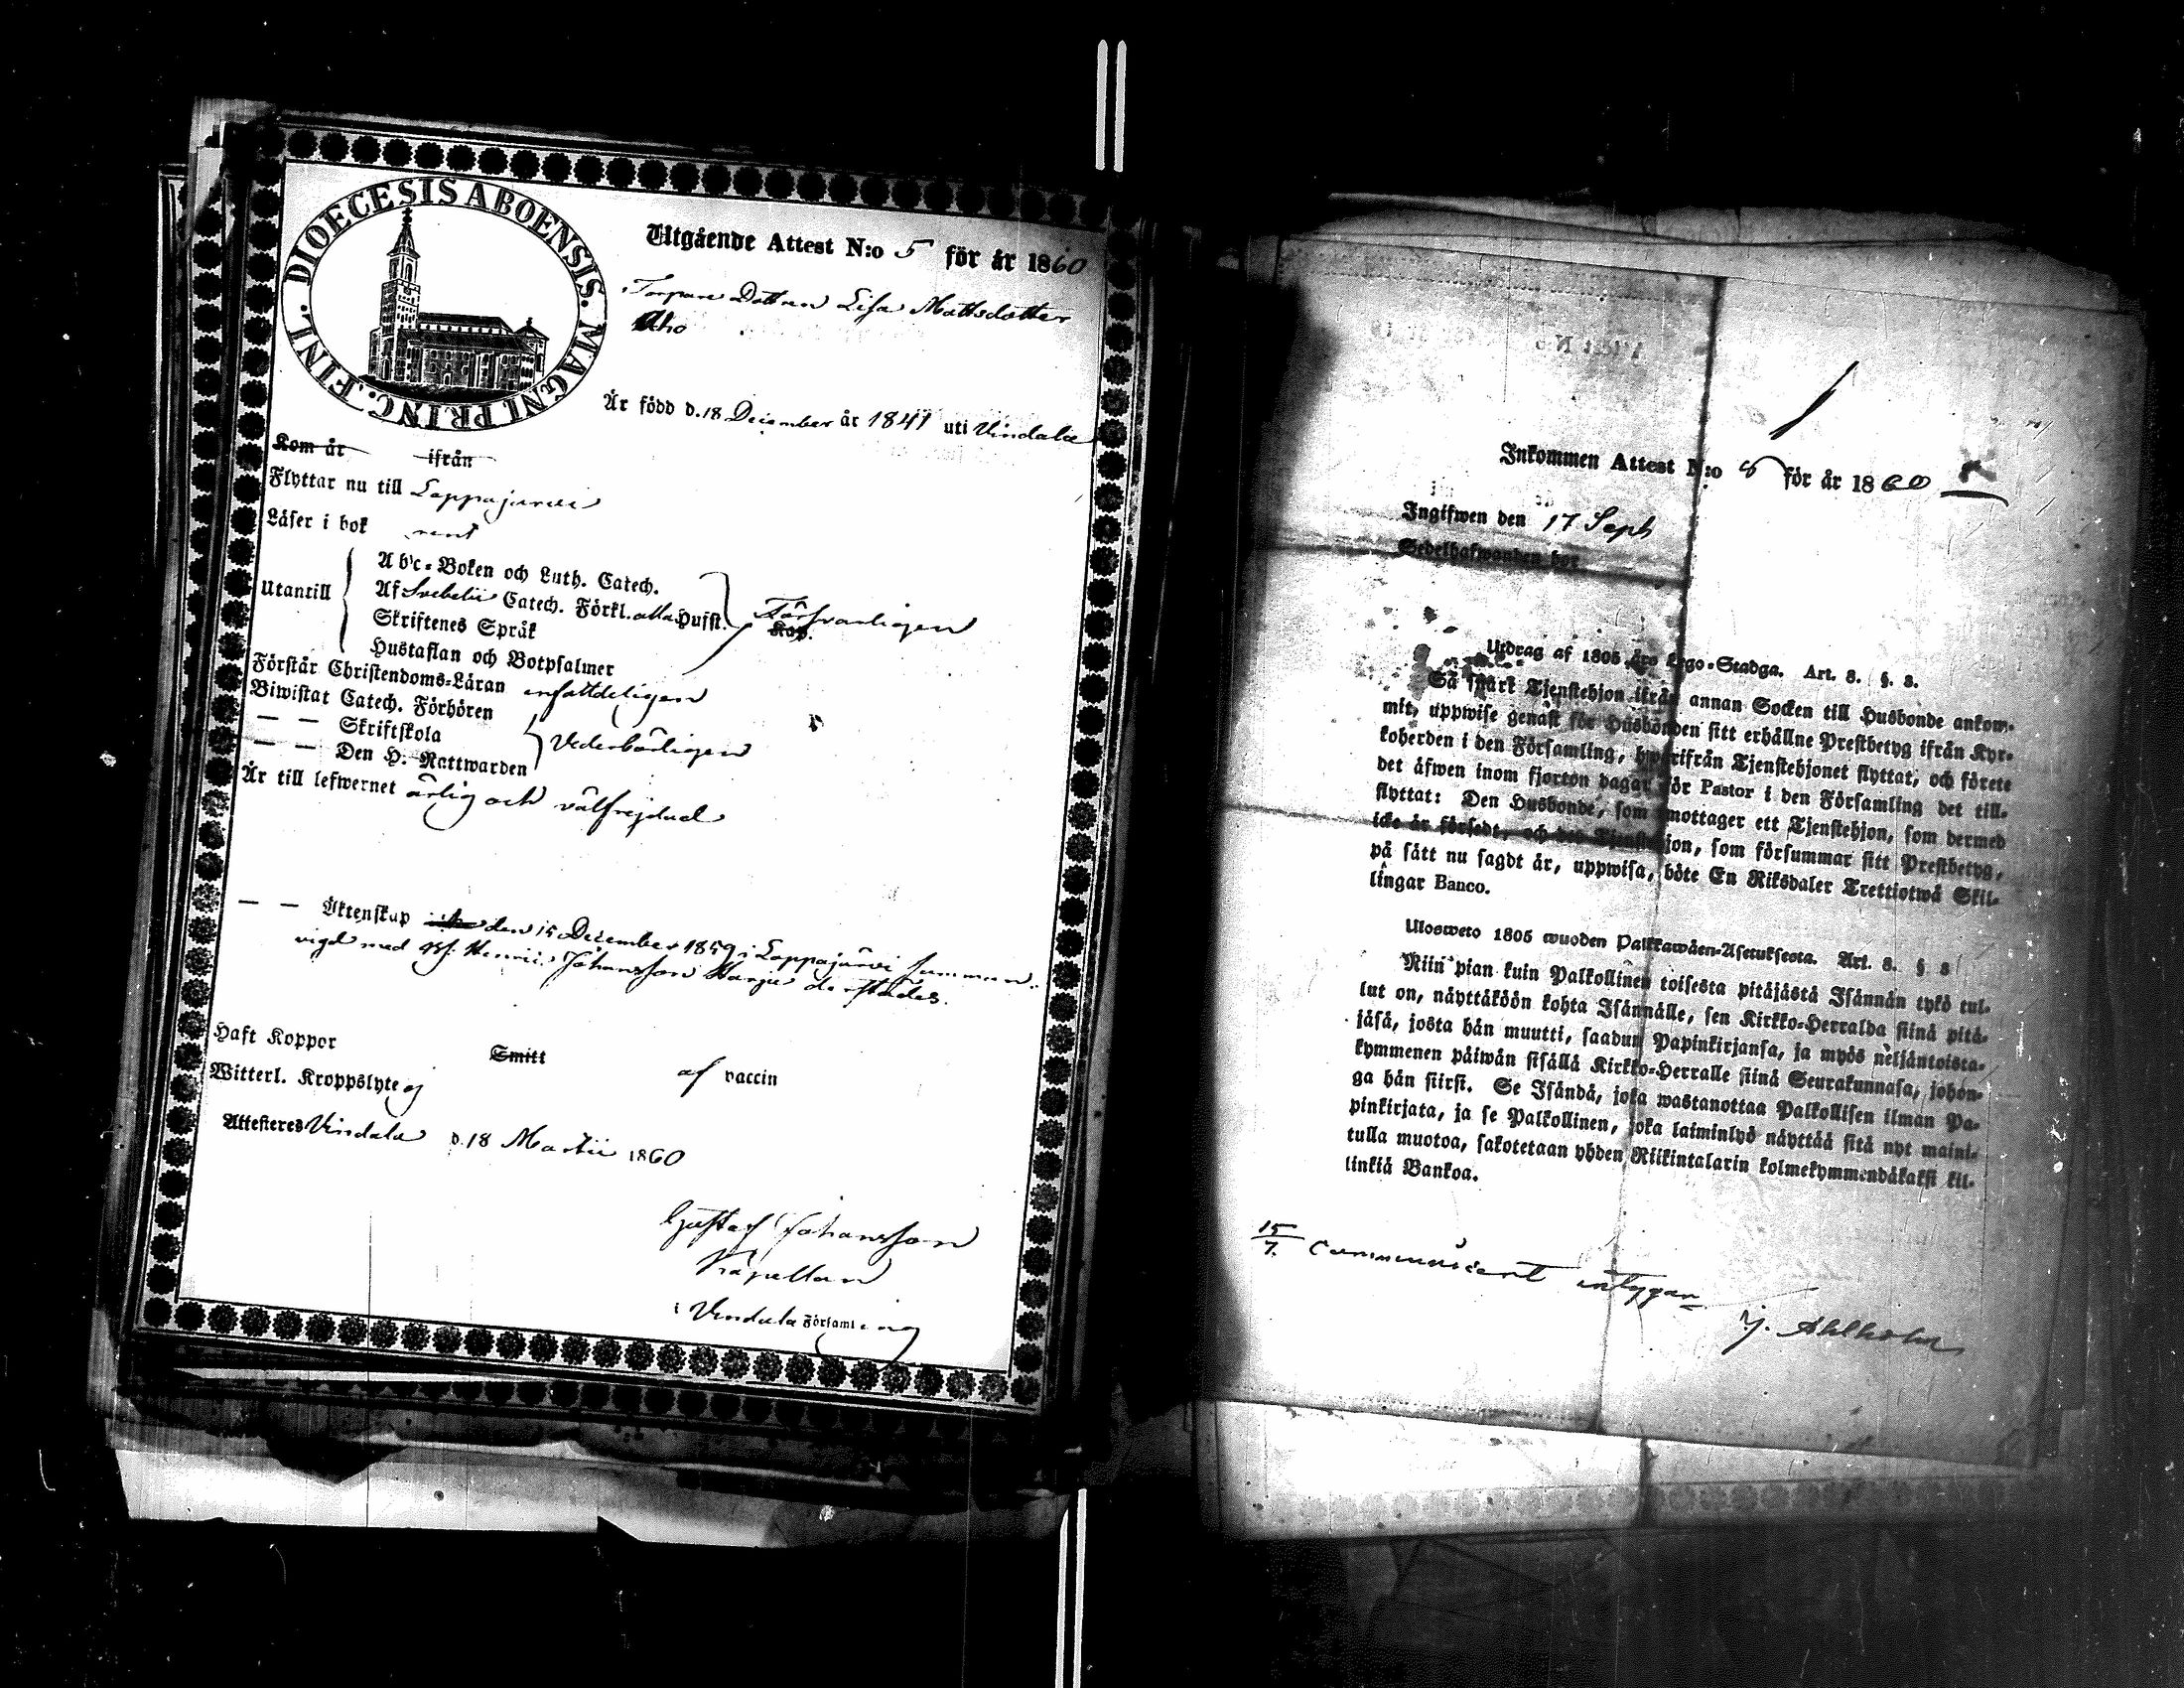 DIOECESIS ABOENSIS. MAGNI PRINC. FINL.
Utgående Attest N:o 5 för år 1860
Torpare Dottren Lisa Mattsdotter
Aho
Är född d. 18 December år 1841 uti Vindala
Kom år ifrån
Flyttar nu till Lappajärvi
Läser i bok rent
Utantill
Abc-Boken och Luth. Catech.
Af Svebelii Catech. Förkl. alla Hufst.
Skriftenes Språk
Hustaflan och Botpsalmer
Försvarligen
Kap.
Förstår Christendoms-Läran enfaldeligen
Biwistat Catech. Förhören
— — Skriftskola
— — Den H. Nattwarden
Vederbörligen
Är till lefwernet ärlig och välfrejdad
— — Äktenskap den 15 December 1859 i Lappajärvi samman-
vigd med Henric Johansson Harju derstädes.
Haft Koppor Smitt af vaccin
Witterl. Kroppslyte ej
Attesteres Vindala d. 18 Martii 1860
Gustaf Johansson
Kapellan
i Vindala Församling
Inkommen Attest N:o 8 för år 1860
Ingifwen den 17 Sept
Sedelhafwanden bor
Utdrag af 1805 års Lego-Stadga. Art. 8. §. 8.
Så snart Tjenstehjon ifrån annan Socken till Husbonde ankom-
mit, uppwise genast för Husbonden sitt erhållne Prestbetyg ifrån Kyr-
koherden i den Församling, hwarifrån Tjenstehjonet flyttat, och förete
det äfwen inom fjorton dagar för Pastor i den Församling det till-
flyttat: Den Husbonde, som emottager ett Tjenstehjon, som dermed
icke är försedt, och det Tjenstehjon, som försummar sitt Prestbetyg,
på sätt nu sagdt är, uppwisa, böte En Riksdaler Trettiotwå Skil-
lingar Banco.
Ulosweto 1805 wuoden Palkkawäen-Asetuksesta. Art. 8. § 8
Niin pian kuin Palkollinen toisesta pitäjästä Isännän tykö tul-
lut on, näyttäköön kohta Isännälle, sen Kirkko-Herralda siinä pitä-
jäsä, josta hän muutti, saadun Papinkirjansa, ja myös neljäntoista-
kymmenen päiwän sisällä Kirkko-Herralle siinä Seurakunnasa, johon-
ga hän siirsi. Se Isändä, joka wastanottaa Palkollisen ilman Pa-
pinkirjata, ja se Palkollinen, joka laiminlyö näyttää sitä nyt maini-
tulla muotoa, sakotetaan yhden Riikintalarin kolmekymmendäkaksi kil-
linkiä Bankoa.
15/7. Communicerat intygar
J. Ahlholm